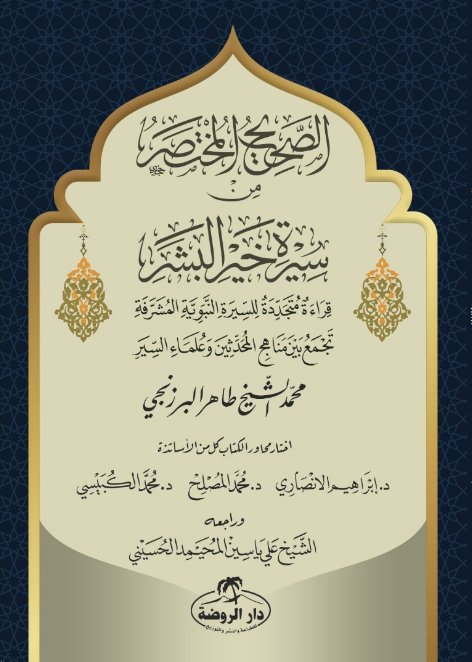 الصَّحِيحُ المُخْتَصَر
مِن
سِيرَةِ خَيْرِ البَشَر
قِرَاءَةٌ مُتَجَدِّدَةٌ لِلسِّيرَةِ النَّبَوِيَّةِ المُشَرَّفَةِ
تَجْمَعُ بَيْنَ مَنَاهِجِ المُحَدِّثِينَ وَعُلَمَاءِ السِّيَر
محمّد الشّيخ طاهر البرزنجي
اختار محاور الكتاب كل من الأساتذة
د. إبْرَاهِيم الانْصَاري د. محُمَّد المُصْلِح د. محُمَّد الكُبَيْسِي
وراجعه
الشَّيْخ عَلي يَاسِين المُحَيْمِد الحُسَيْني
دار الروضة
للطباعة والنشر والتوزيع